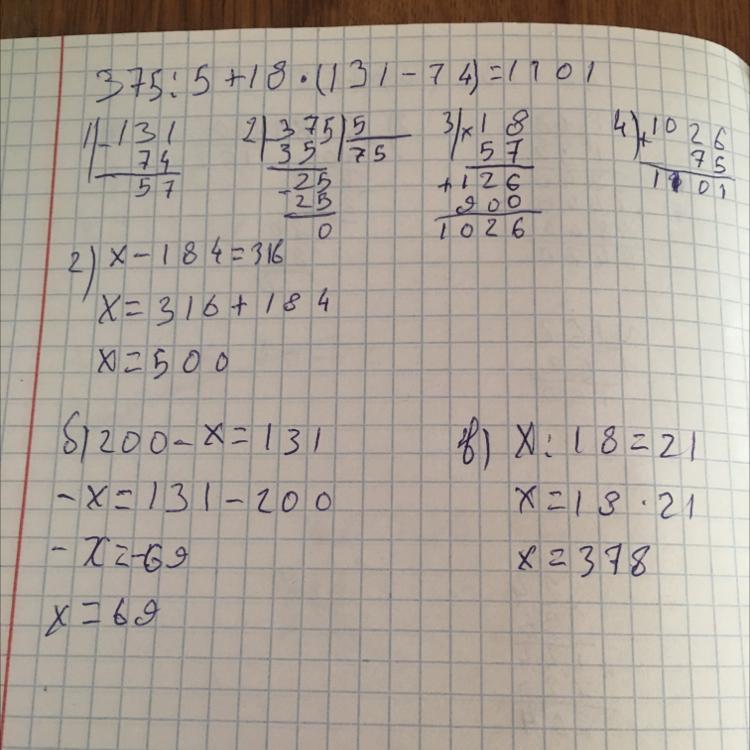 375:5+18·(131-74)=1101
1) -131 2) 375|5 3) ×18 4) +1026
74 35 75 57 75
57 -25 +126 1101
25 900
0 1026
2) x-184=316
x=316+184
x=500
б) 200-x=131 в) x:18=21
-x=131-200 x=18·21
-x=-69 x=378
x=69